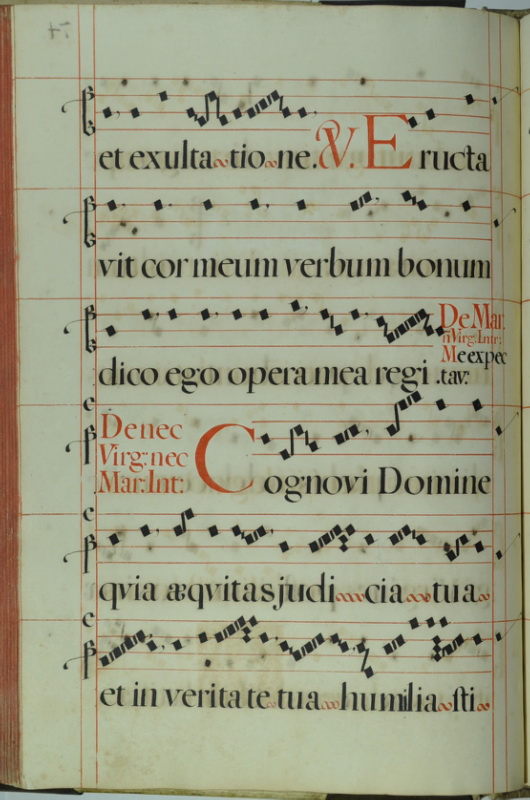 et exulta tio ne. V. Eructa
vit cor meum verbum bonum
De Mar.
n Virg: Intr:
Me expec
dico ego opera mea regi .tav:
De nec
Virg: nec
Mar: Int:
Cognovi Domine
qvia æqvitas judi cia tua
et in verita te tua humilia sti